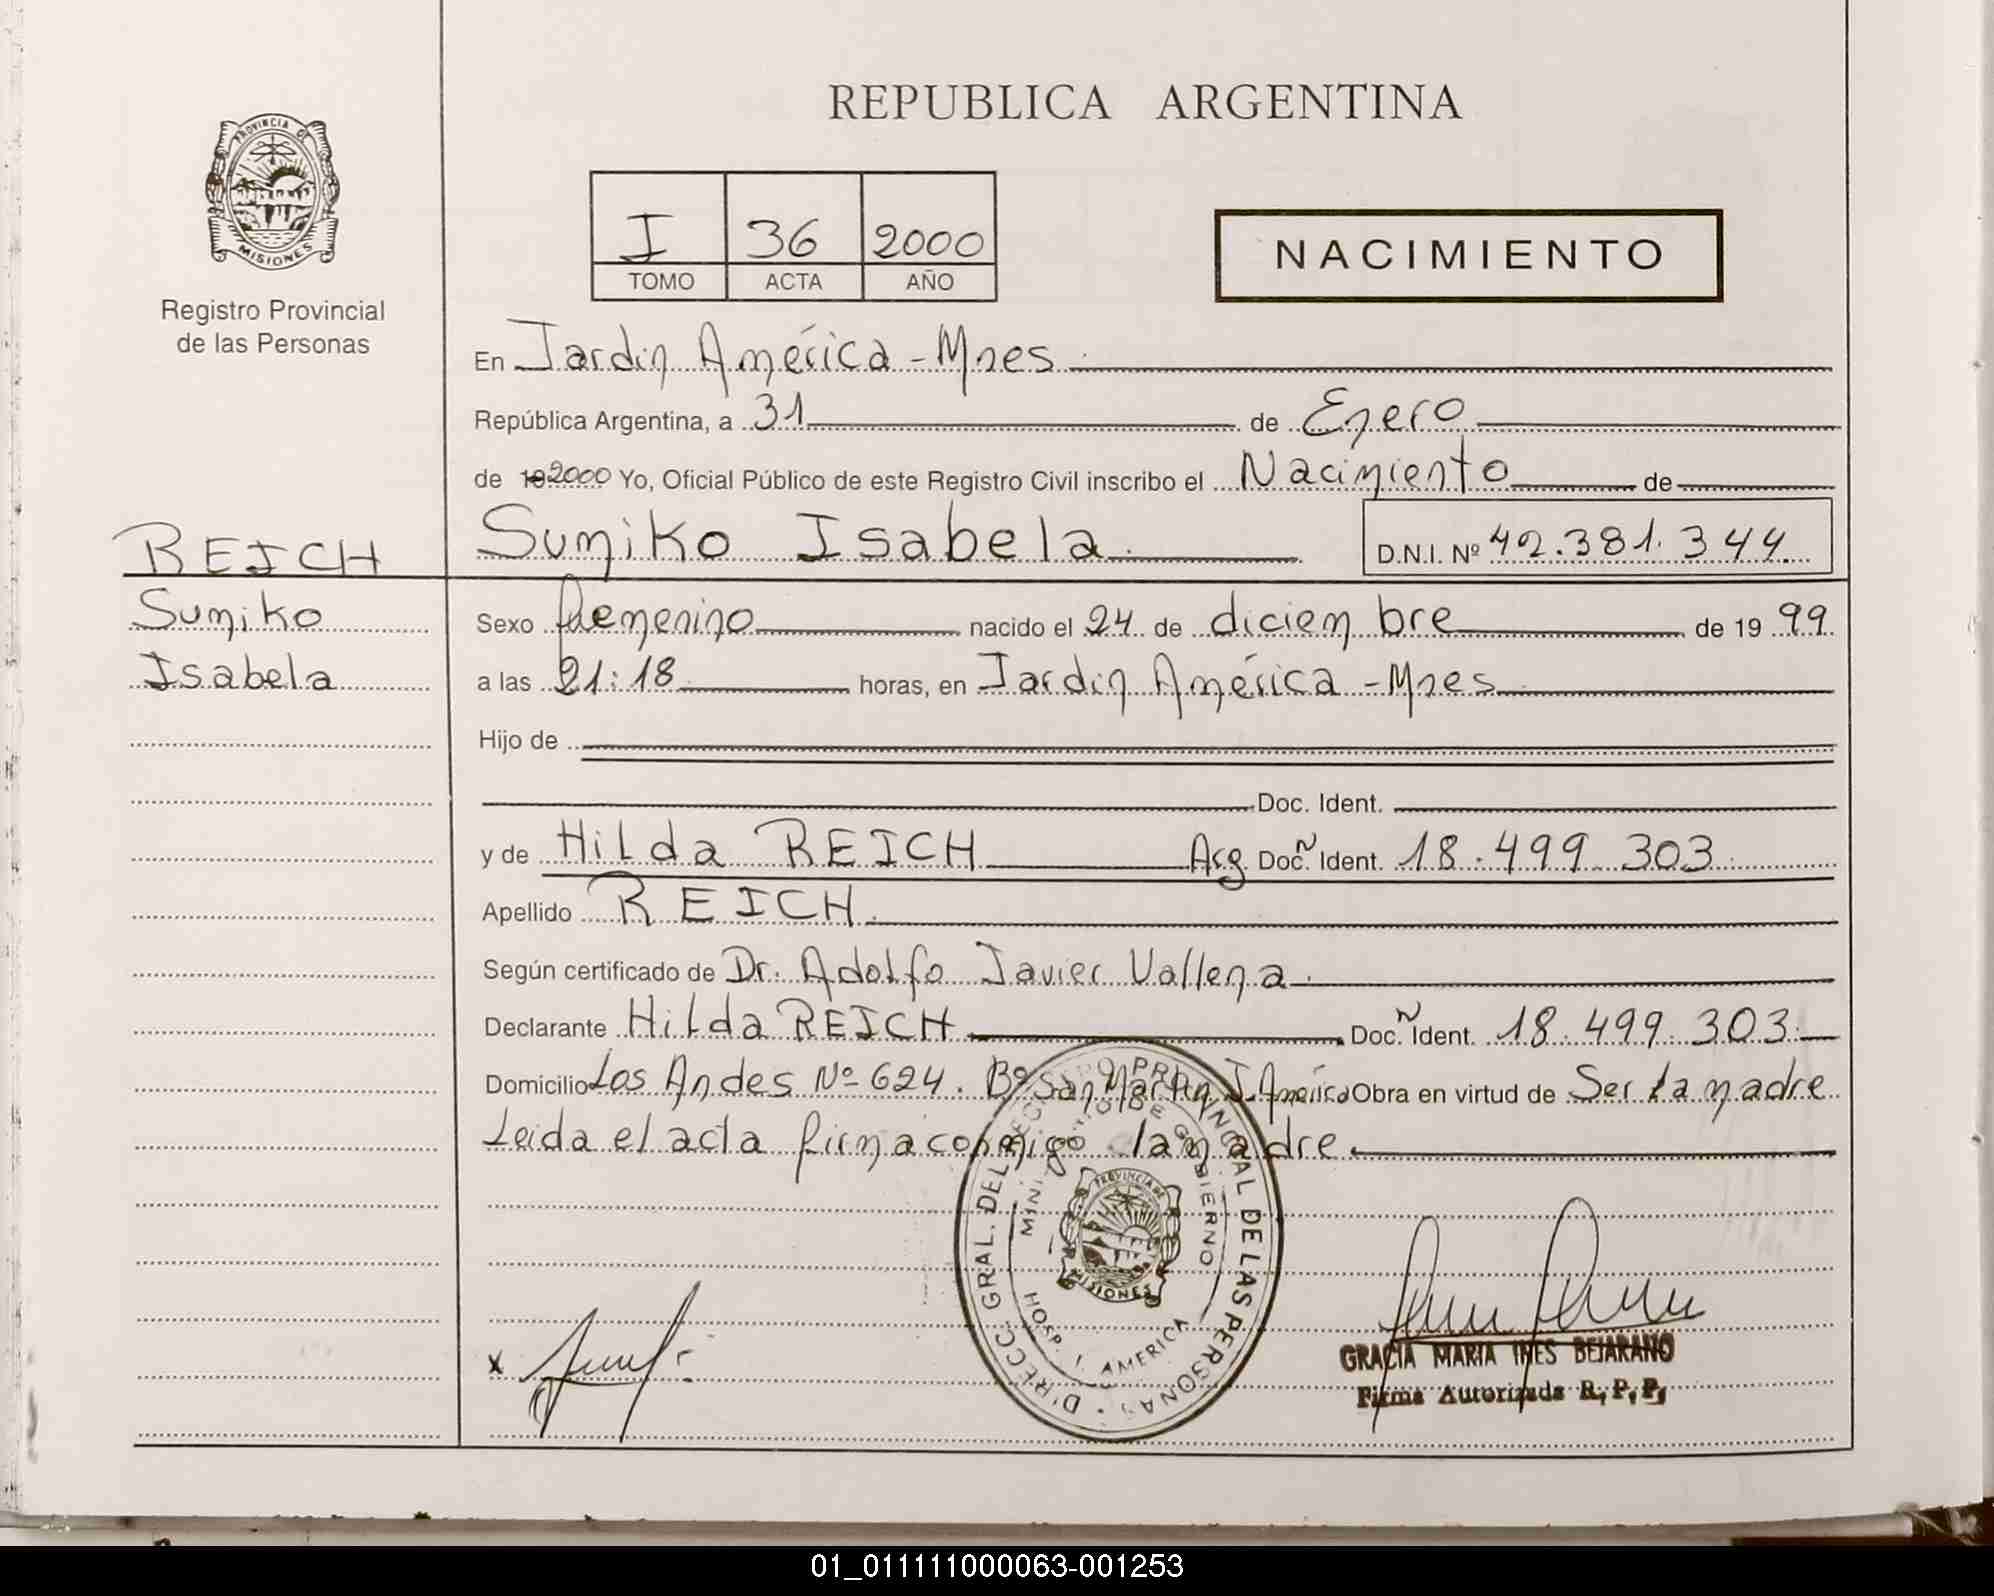 REPUBLICA ARGENTINA
PROVINCIA DE
MISIONES
Registro Provincial
de las Personas
I 36 2000
TOMO ACTA AÑO
NACIMIENTO
En Jardin América - Mnes.
República Argentina, a 31 de Enero
de 19 2000 Yo, Oficial Público de este Registro Civil inscribo el Nacimiento de
REICH
Sumiko Isabela. D.N.I. Nº 42.381.344
Sumiko
Isabela
Sexo femenino nacido el 24 de diciembre de 19 99
a las 21:18 horas, en Jardin América - Mnes
Hijo de
Doc. Ident.
y de Hilda REICH Arg. Doc. N Ident. 18.499.303
Apellido REICH.
Según certificado de Dr. Adolfo Javier Vallena.
Declarante Hilda REICH Doc. N Ident. 18.499.303.
Domicilio Los Andes Nº 624. Bº San Martin J. América Obra en virtud de Ser la madre
Leida el acta firma conmigo la madre.
DIRECC. GRAL. DEL REGISTRO PROVINCIAL DE LAS PERSONAS
MINISTERIO DE GOBIERNO
PROVINCIA DE
MISIONES
HOSP. J. AMERICA
x
GRACIA MARIA INES BEJARANO
Firma Autorizada R. P. P.
01_011111000063-001253